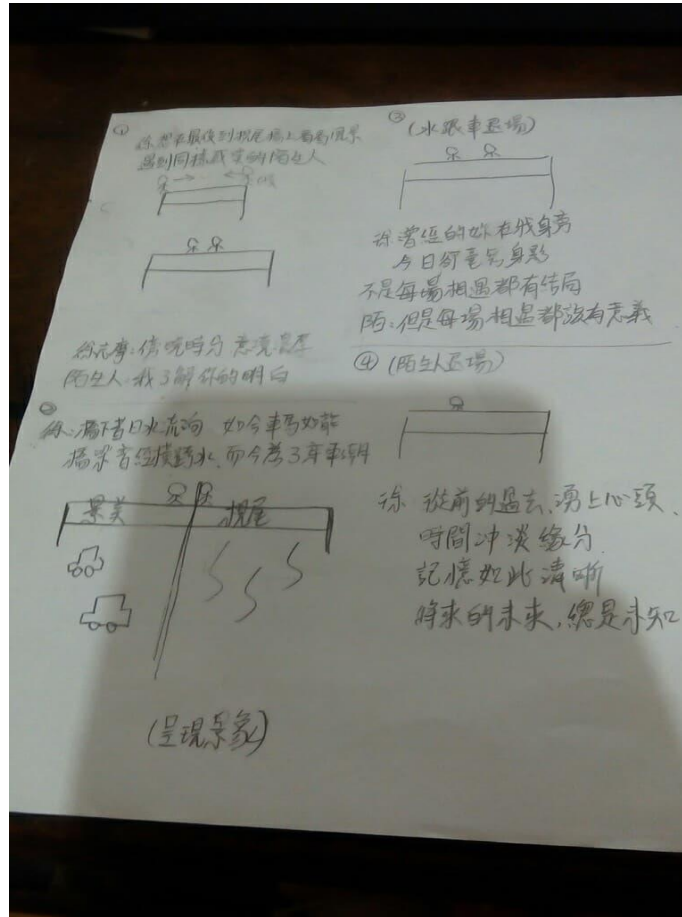 ①
徐想在最後到槐尾橋上看看風景
遇到同樣感受的陌生人
徐元摩:傍晚時分 意境濃厚
陌生人:我了解你的明白
②
徐:橋下昔日水流淌 如今車馬如龍
橋梁曾經橫跨水,而今為了車潮
景美
槐尾
(呈現景象)
③
(水跟車退場)
徐 曾經的妳在我身旁
今日卻毫無身影
不是每場相遇都有結局
陌:但是每場相遇都沒有意義
④ (陌生人退場)
徐 從前的過去、湧上心頭、
時間沖淡緣分
記憶如此清晰
將來的未來,總是未知